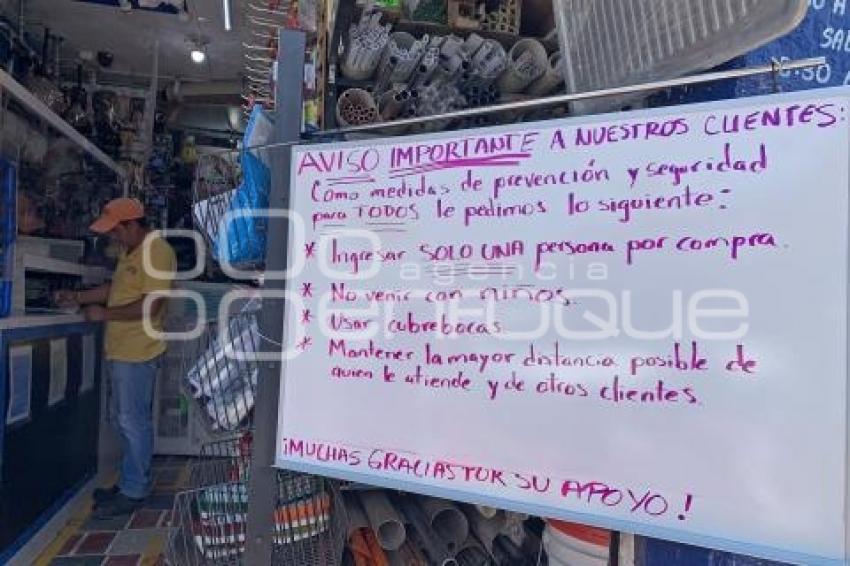 SAL
AVISO IMPORTANTE A NUESTROS CLIENTES:
Como medidas de prevención y seguridad
para TODOS le pedimos lo siguiente:
* Ingresar SOLO UNA persona por compra.
agencia
enfoque
* No venir con niños.
* Usar cubrebocas
* Mantener la mayor distancia posible de
quien le atiende y de otros clientes.
¡MUCHAS GRACIAS POR SU APOYO!